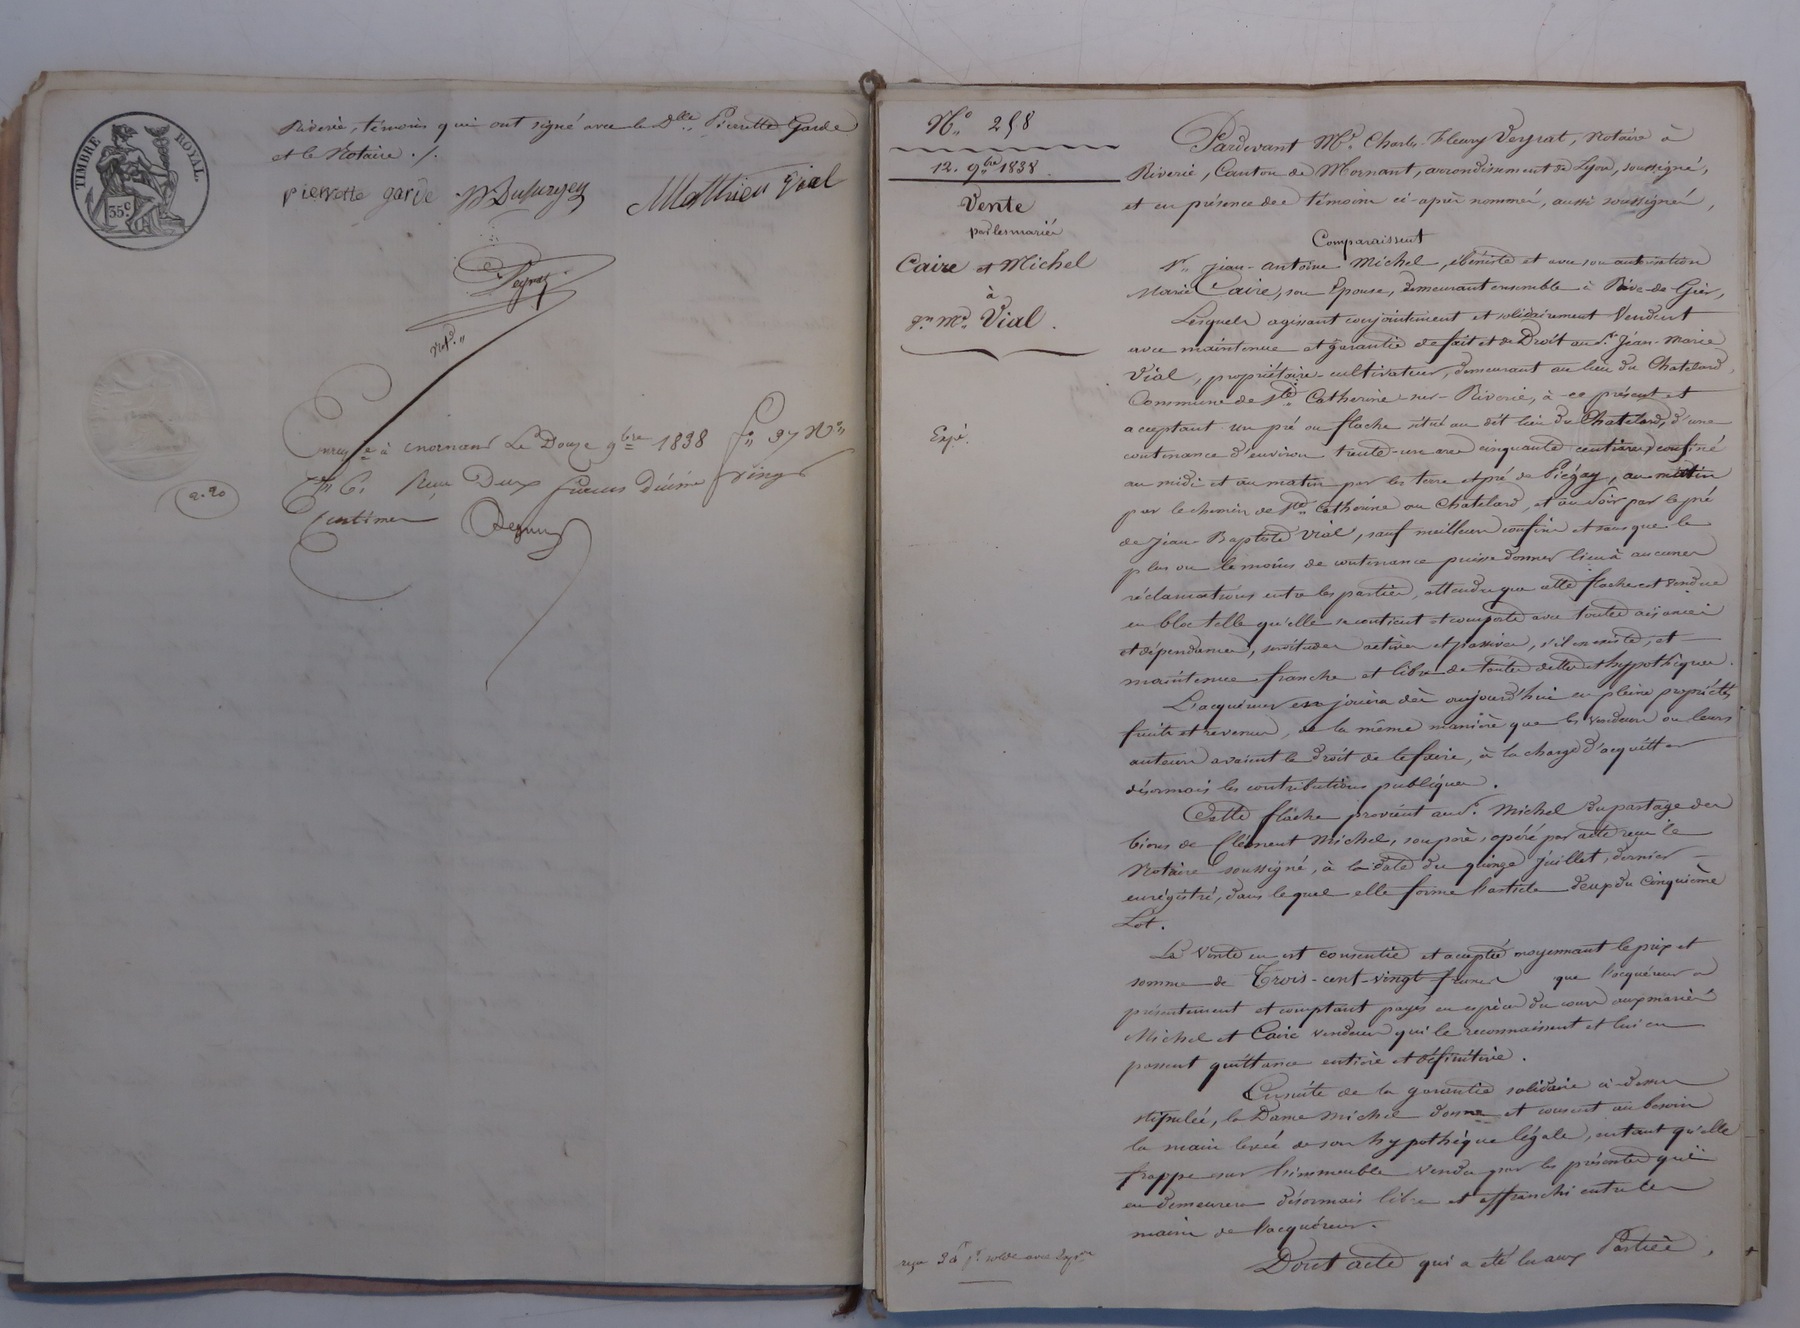 TIMBRE ROYAL.
35c
Riverie, témoins qui ont signé avec la Dlle. Pierrette Garde
et le Notaire ./.
pierrette garde Matthieu Vial
Veyrat
Not.re
Enreg.é à Mornant Le Douze 9bre 1838 f.o 37 N.o
C. 6. Reçu Deux francs dixième vingt
Centimes
2.20
N.o 258
12. 9bre 1838.
Vente
par les mariés
Caire et Michel
à
Jn. Me. Vial.
Expé.
Pardevant Me. Charles-Fleury Veyrat, Notaire à
Riverie, Canton de Mornant, arrondissement de Lyon, soussigné,
et en présence des témoins ci-après nommés, aussi soussignés,
Comparaissent
Sr. Jean-Antoine Michel, ébéniste et avec son autorisation
Marie Caire, son Epouse, demeurant ensemble à Rive-de-Gier,
Lesquels agissant conjointement et solidairement Vendent
avec maintenue et garantie de fait et de Droit au Sr. Jean-Marie
Vial, propriétaire-cultivateur, demeurant au lieu du Chatelard,
Commune de Ste. Catherine-sur-Riverie, à ce présent et
acceptant un pré ou flache situé au dit lieu du Chatelard, d'une
contenance d'environ trente-un ares cinquante centiares, confiné
au midi et au matin par les terre et pré de Piégay, au matin
par le chemin de Ste. Catherine au Chatelard, et au soir par le pré
de Jean-Baptiste Vial, sauf meilleurs confins et sans que le
plus ou le moins de contenance puisse donner lieu à aucunes
réclamations entre les parties, attendu que cette flache est vendue
en bloc telle qu'elle se contient et comporte avec toutes aisances
et dépendances, servitudes actives et passives, s'il en existe, et
maintenue franche et libre de toutes dettes et hypothèques.
L'acquéreur en jouira dès aujourd'hui en pleine propriété,
fruits et revenus, de la même manière que les vendeurs ou leurs
auteurs avaient le droit de le faire, à la charge d'acquitter
désormais les contributions publiques.
Cette flache provient au Sr. Michel du partage des
biens de Clément Michel, son père, opéré par acte reçu le
Notaire soussigné, à la date du quinze Juillet, dernier
enregistré, dans lequel elle forme l'article deux du Cinquième
Lot.
La Vente en est consentie et acceptée moyennant le prix et
somme de Trois-cent-vingt francs que l'acquéreur a
présentement et comptant payés en espèces du cours aux mariés
Michel et Caire vendeurs qui le reconnaissent et lui en
passent quittance entière et définitive.
Ensuite de la garantie solidaire ci-dessus
stipulée, la Dame Michel donne et consent au besoin
la main levée de son hypothèque légale, entant qu'elle
frappe sur l'immeuble vendu par les présentes qui
en demeurera désormais libre et affranchi entre les
mains de l'acquéreur.
Dont acte qui a été lu aux Parties,
reçu solde avec